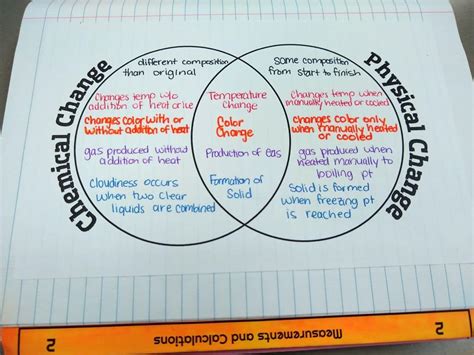 Chemical Change
different composition
than original
Changes temp w/o
addition of heat
changes color with or
without addition of heat
gas produced without
addition of heat
Cloudiness occurs
when two clear
liquids are combined
Temperature
Change
Color
Change
Production of Gas
Formation of
Solid
Physical Change
Same composition
from start to finish
Changes temp when
manually heated or cooled
changes color only
when manually heated
or cooled
gas produced when
heated manually to
boiling pt
Solid is formed
when freezing pt
is reached
2
Measurements and Calculations
2